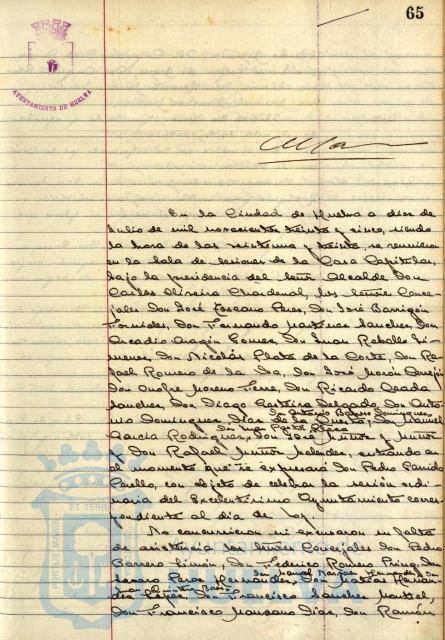 65
AYUNTAMIENTO DE HUELVA
En la Ciudad de Huelva a diez de
Julio de mil novecientos treinta y cinco, siendo
la hora de las veintiuna y treinta, se reunieron
en la Sala de sesiones de la Casa Capitular,
bajo la presidencia del Señor Alcalde Don
Carlos Oliveira Chardenal, los Señores Conce-
jales Don José Toscano Perez, Don José Barrigón
Fornieles, Don Fernando Martinez Sanchez, Don
Arcadio Aragón Gomez, Don Juan Rebollo Ji-
menez, Don Nicolás Plata de la Corte, Don Ra-
fael Romero de la Don José Morón
Don Onofre Moreno Don Ricardo
Sanchez, Don Diego Delgado, Don Anto-
Don Antonio Domínguez
nio Domínguez Díaz de la Don Manuel
Don Juan
García Rodríguez, Don José Muñoz y Muñoz
y Don Rafael Muñoz entrando en
el momento que se expresará Don Pedro Garrido
Perelló, con objeto de celebrar la sesión ordi-
naria del Excelentísimo Ayuntamiento corres-
pondiente al día de hoy.
No concurrieron ni excusaron su falta
de asistencia los Señores Concejales Don Pedro
Borrero Limón, Don Federico Romero Don
Don Manuel
Perez Hernández, Don Matías Hernán-
dez Don Francisco Sanchez
Don Francisco Manzano Díaz, Don Ramón